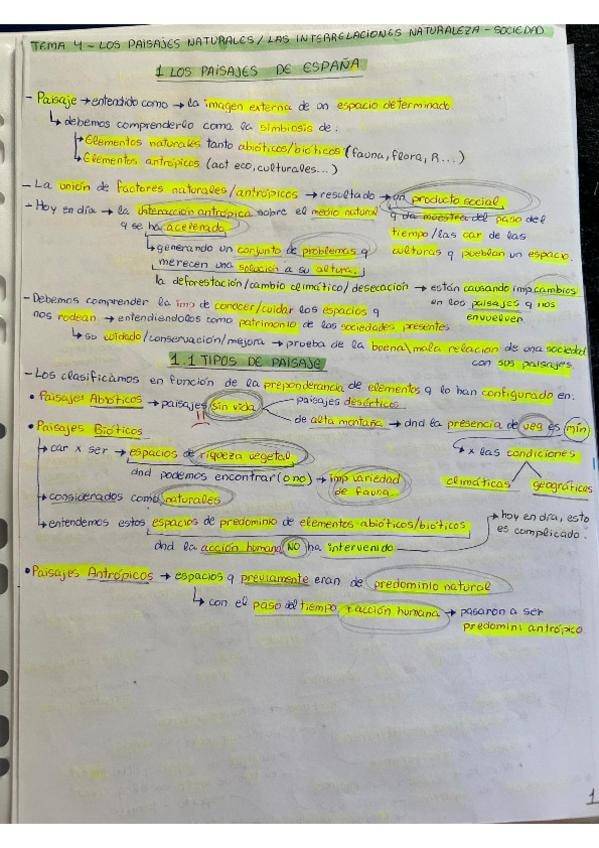 TEMA 4 - LOS PAISAJES NATURALES / LAS INTERRELACIONES NATURALEZA - SOCIEDAD
1 LOS PAISAJES DE ESPAÑA
- Paisaje → entendido como → la imagen externa de un espacio determinado.
↳ debemos comprenderlo como la simbiosis de:
↳ Elementos naturales tanto abióticos/bióticos (fauna, flora, R...)
↳ Elementos antrópicos (act eco, culturales...)
- La unión de factores naturales/antrópicos → resultado → un producto social,
q da muestra del paso del
tiempo/las car de las
culturas q pueblan un espacio.
- Hoy en día → la interacción antrópica sobre el medio natural
q se ha acelerado,
↳ generando un conjunto de problemas q
merecen una solución a su altura.
la deforestación/cambio climático/desecación → están causando imp cambios
en los paisajes q nos
envuelven
- Debemos comprender la imp de conocer/cuidar los espacios q
nos rodean → entendiendolos como patrimonio de las sociedades presentes
↳ su cuidado/conservación/mejora → prueba de la buena\mala relación de una sociedad
con sus paisajes
1.1 TIPOS DE PAISAJE
- Los clasificamos en función de la preponderancia de elementos q lo han configurado en:
• Paisajes Abióticos → paisajes sin vida
paisajes desérticos
de alta montaña → dnd la presencia de veg es mín
↳ x las condiciones
climáticas
geográficas
• Paisajes Bióticos
↳ car x ser → espacios de riqueza vegetal,
dnd podemos encontrar (o no) → imp variedad
de fauna.
↳ considerados como naturales
↳ entendemos estos espacios de predominio de elementos abióticos/bióticos
dnd la acción humana NO ha intervenido
→ hoy en día, esto
es complicado.
• Paisajes Antrópicos → espacios q previamente eran de predominio natural
↳ con el paso del tiempo y acción humana → pasaron a ser
predomini antrópico
1